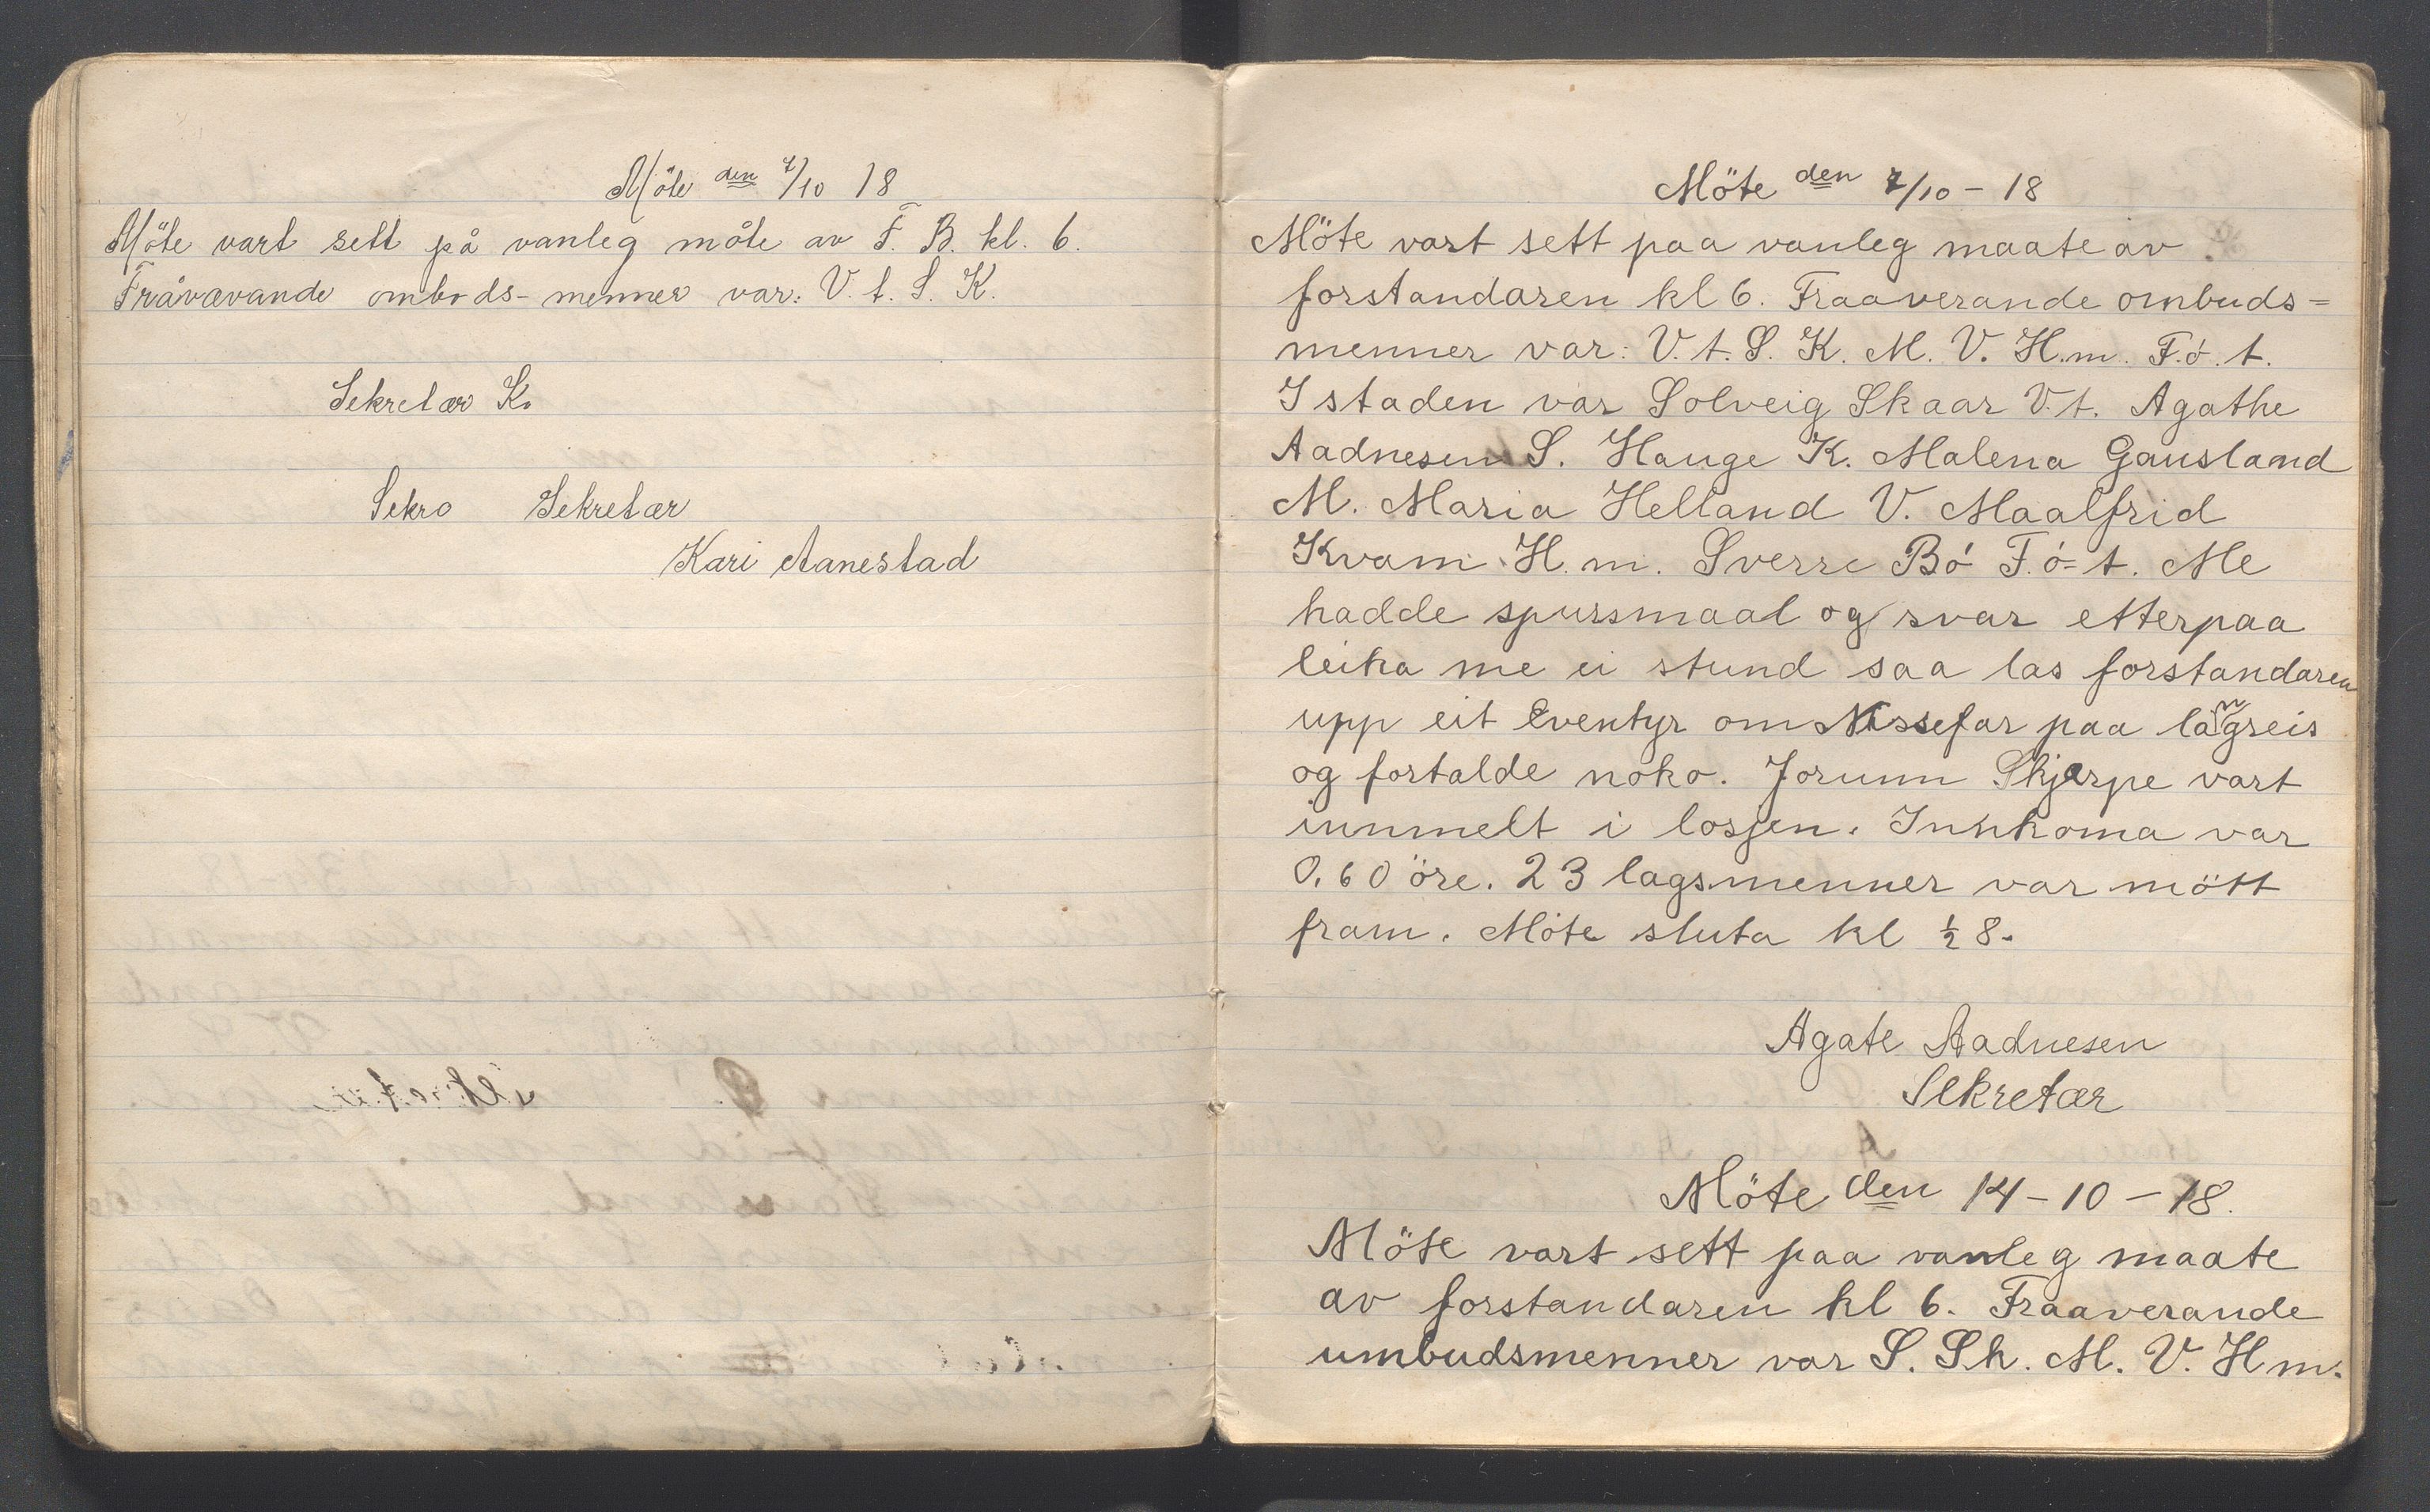 Möte den 7/10 18
Möte vart sett på vanleg måte av F. B. kl. 6.
Fråværande ombods-menner var: V. t. S. K.
Sekretær K.
Sekre Sekretær
Kari Aanestad
Möte den 7/10 – 18
Möte vart sett paa vanleg maate av
forstandaren kl 6. Fraaverande ombuds=
menner var: V. t. S. K. M. V. H.m. F.ó.t.
I staden var Solveig Skaar V.t. Agathe
Aadnesen S. Hauge K. Malena Gausland
M. Maria Helland V. Maalfrid
Kvam H.m. Sverre Bó F.ó=t. Me
hadde spursmaal og svar etterpaa
leika me ei stund saa las forstandaren
upp eit Eventyr om Nissefar paa langreis
og fortalde noko. Jorunn Skjerpe vart
innmelt i losjen. Innkoma var
0.60 öre. 23 lagsmenner var mött
fram. Móte sluta kl ½ 8.
Agate Aadnesen
Sekretær
Möte den 14-10-18.
Möte vart sett paa vanleg maate
av forstandaren kl 6. Fraaverande
umbudsmenner var S. Sk. M. V. H m.